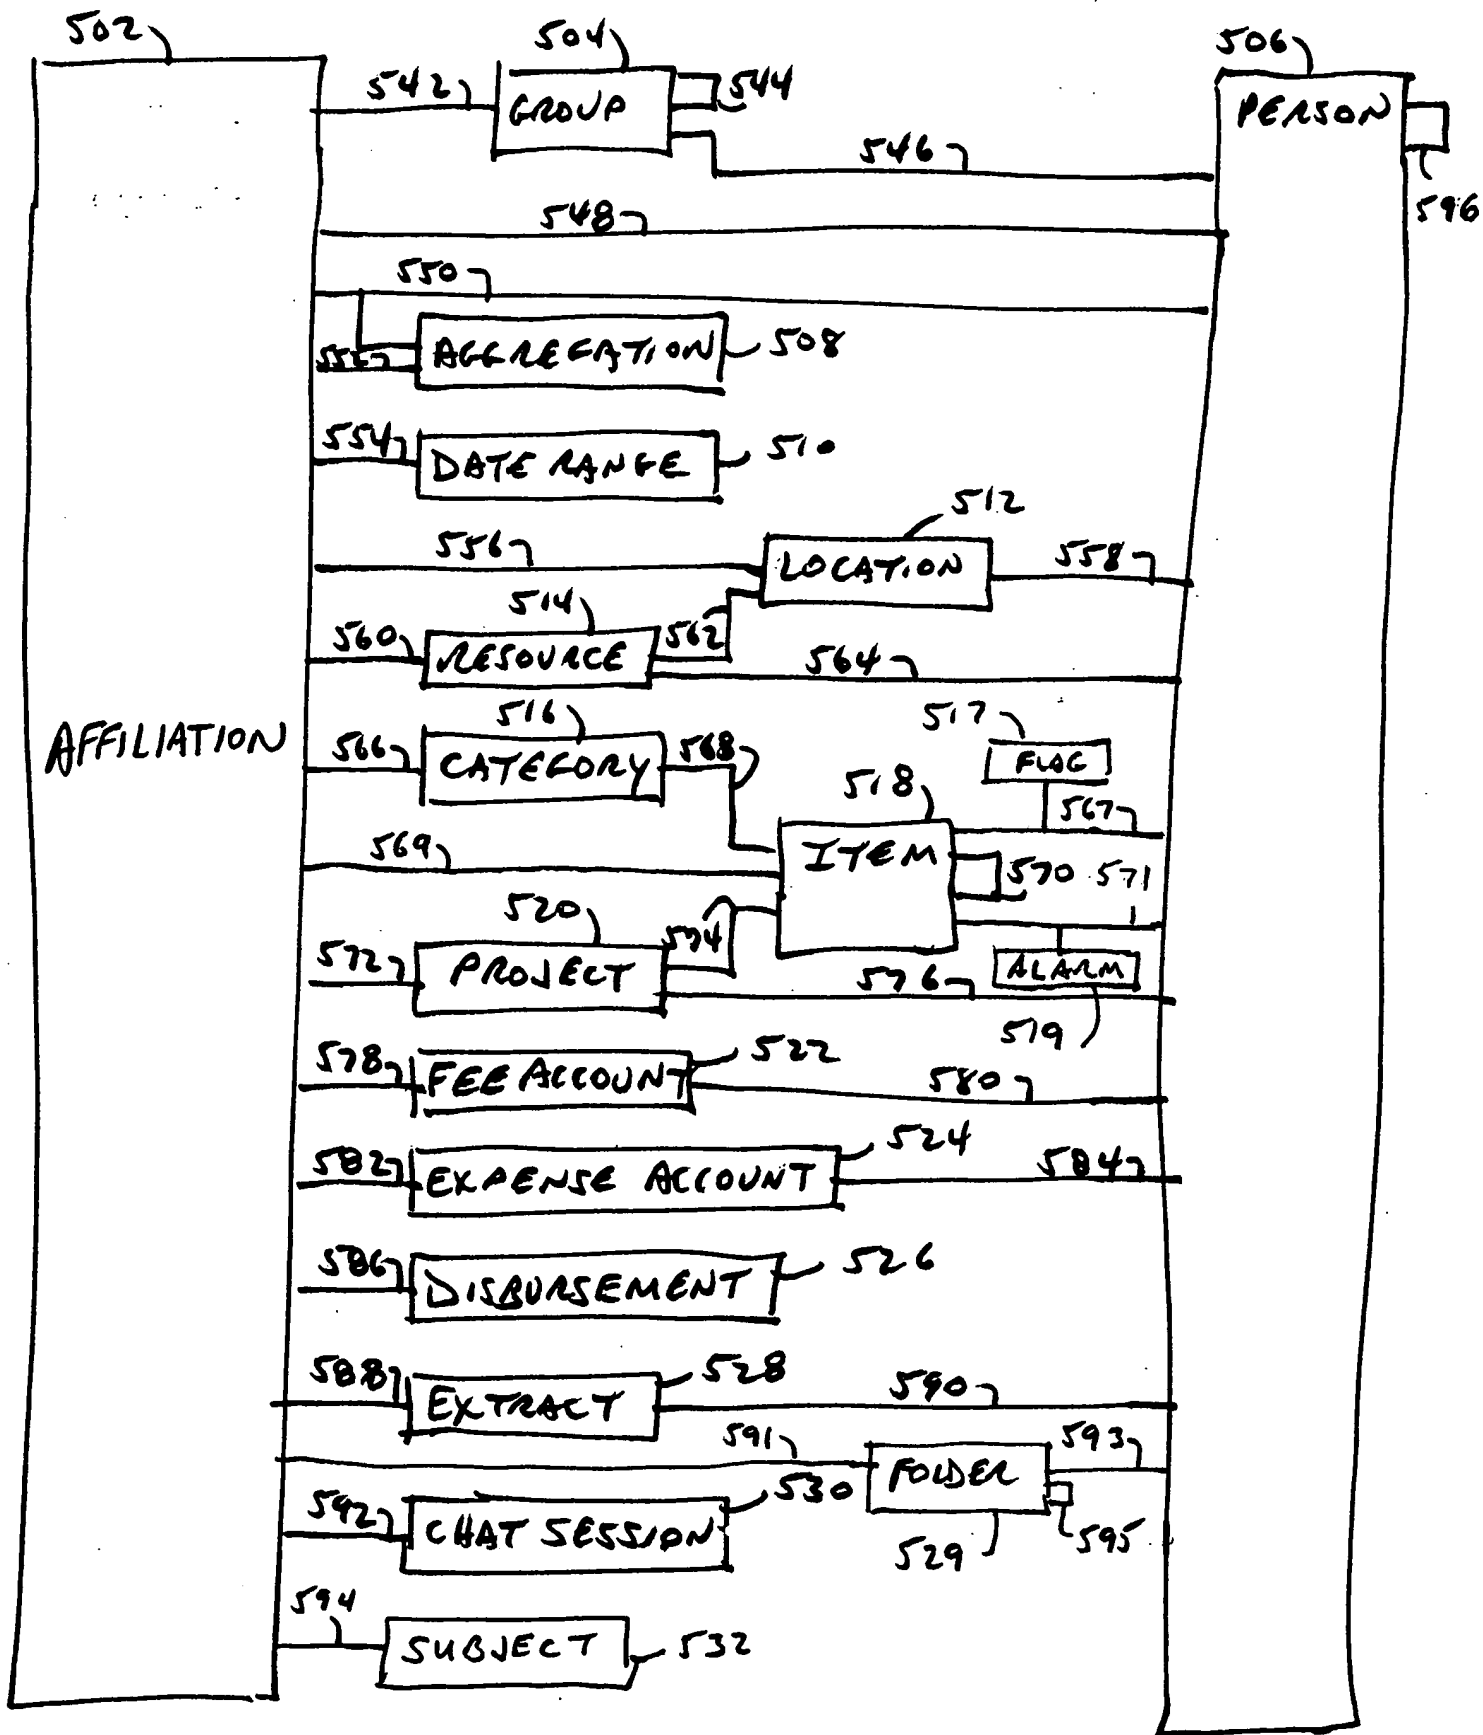 502
504
506
542
GROUP
544
PERSON
546
596
548
550
AGGREGATION
508
552
554
DATE RANGE
510
512
556
LOCATION
558
514
560
RESOURCE
562
564
AFFILIATION
516
517
566
CATEGORY
568
FLAG
518
567
569
ITEM
570
571
520
574
572
PROJECT
576
ALARM
519
578
FEE ACCOUNT
522
580
524
582
EXPENSE ACCOUNT
584
586
DISBURSEMENT
526
588
EXTRACT
528
590
591
593
FOLDER
530
592
CHAT SESSION
529
595
594
SUBJECT
532